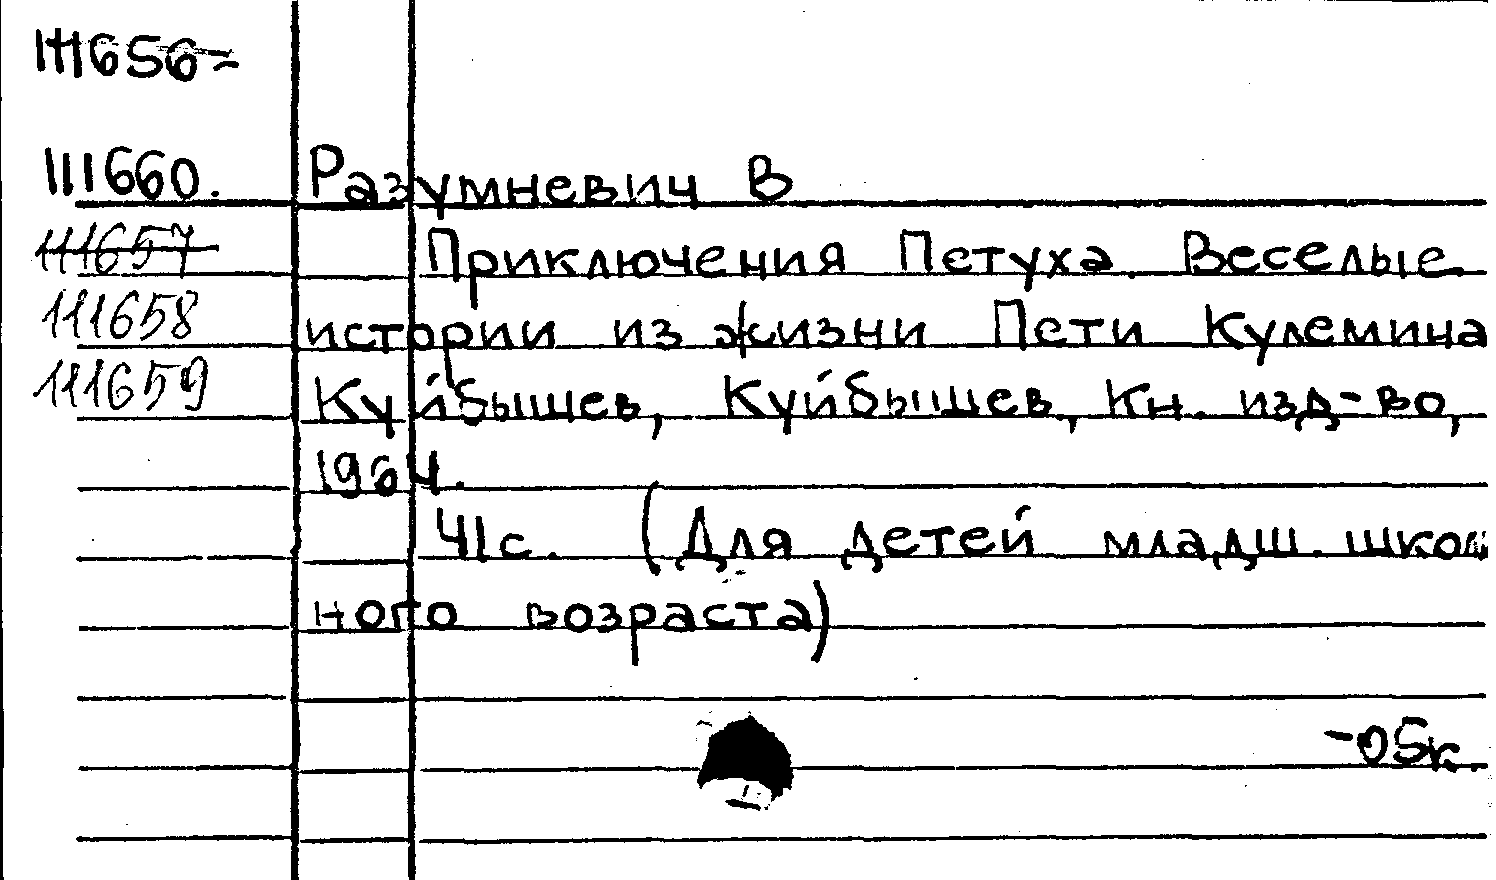 111656=
111660. Разумневич В
111657 Приключения Петуха. Веселые
111658 истории из жизни Пети Кулемина
111659 Куйбышев, Куйбышев, Кн. изд-во,
1964.
41с. (Для детей младш. школь
ного возраста)
-05к.